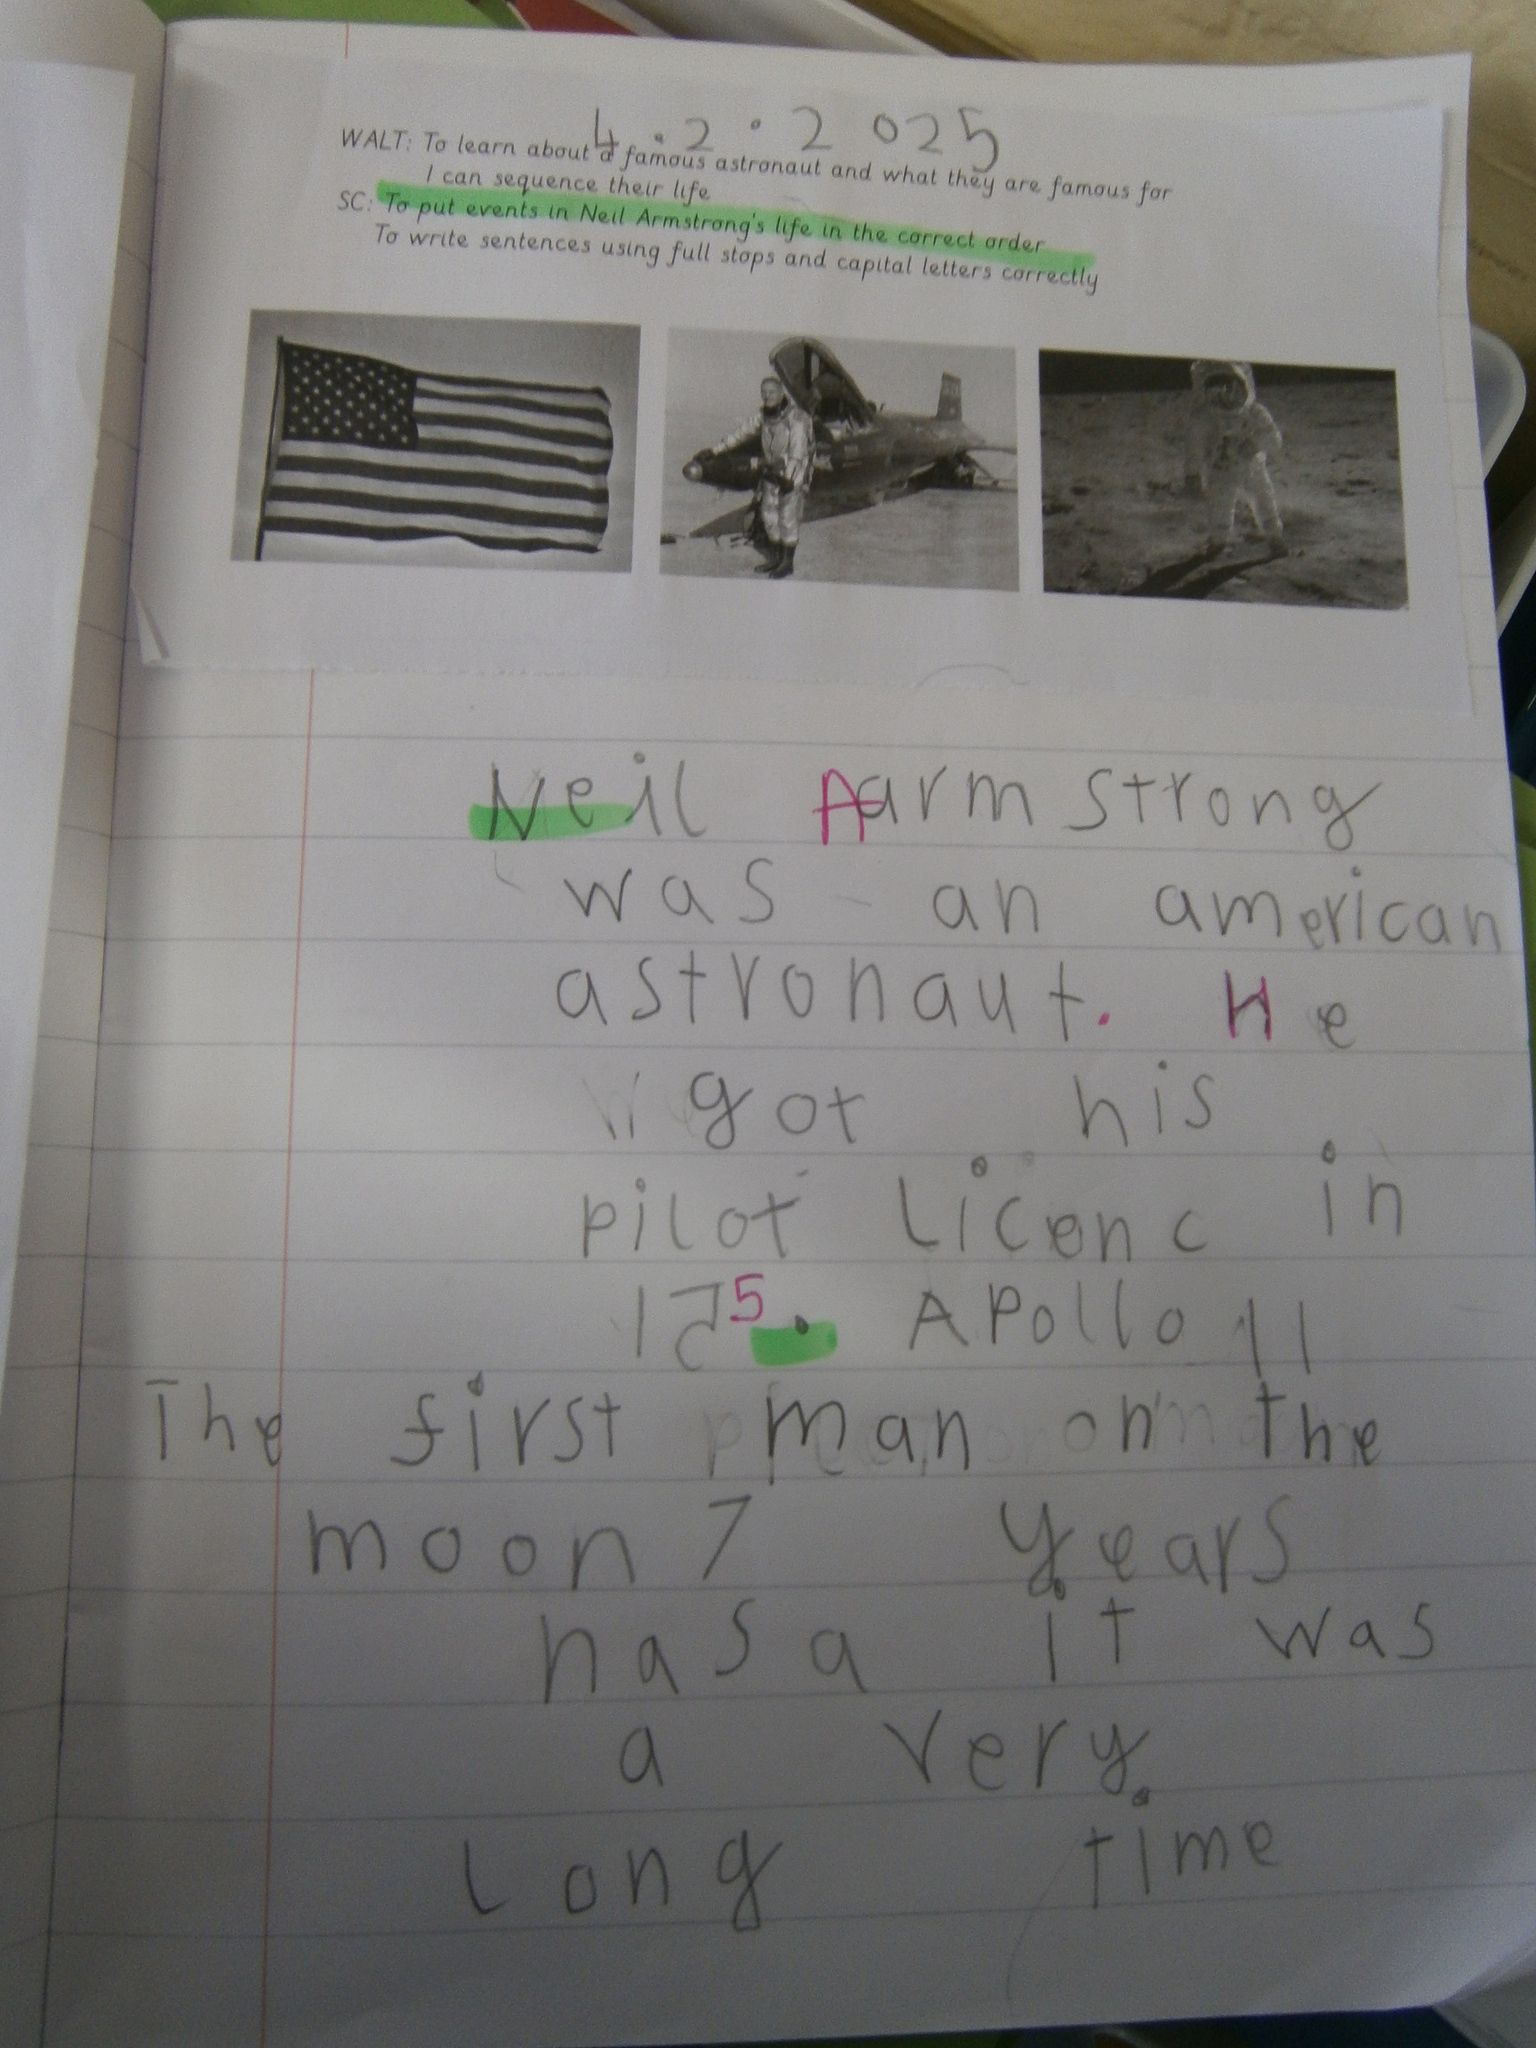 4.2.2025
WALT: To learn about a famous astronaut and what they are famous for
I can sequence their life
SC: To put events in Neil Armstrong's life in the correct order
To write sentences using full stops and capital letters correctly
Neil Aarmstrong
was an american
astronaut. He
got his
pilot Licenc in
155. Apollo 11
The first man on the
moon 7 years
nasa it was
a very
long time